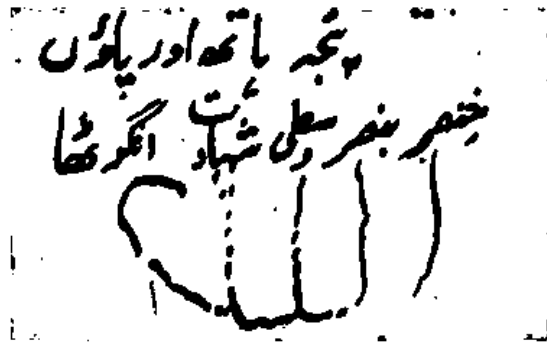 پنجہ ہاتھ اور پاؤں
خنصر بنصر وسطی شہادت انگوٹھا